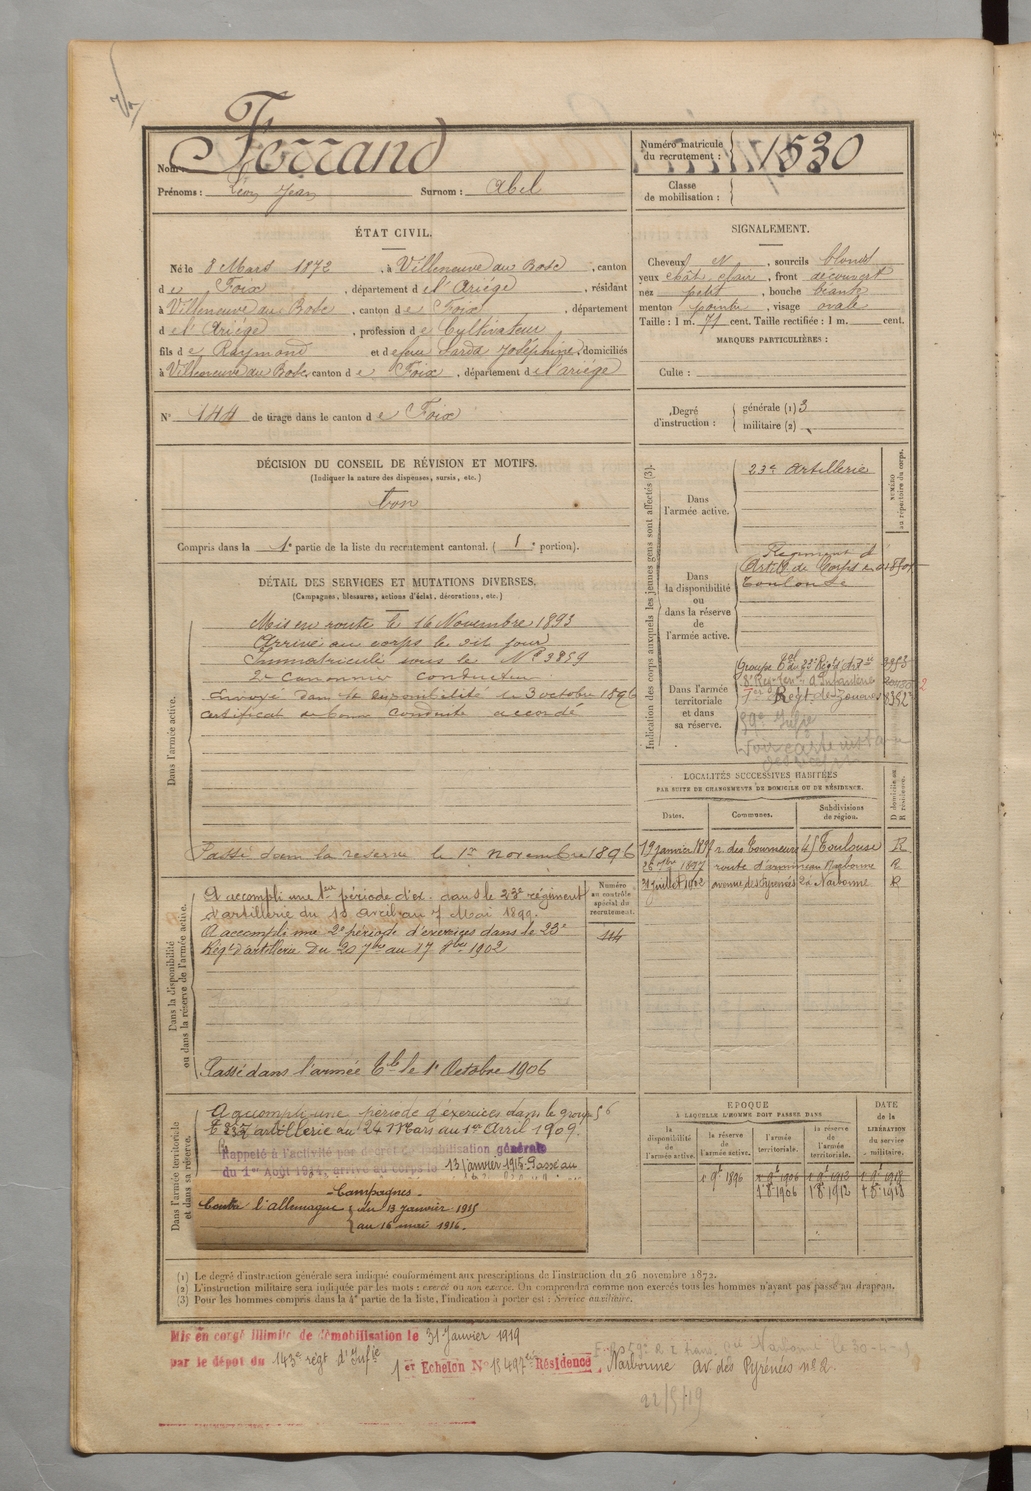 Nom : Ferrand
Prénoms : Léon Jean Surnom : Abel
Numéro matricule du recrutement : 1530
Classe de mobilisation :
ÉTAT CIVIL.
Né le 8 Mars 1872, à Villeneuve du Bosc, canton
de Foix, département de l'Ariège, résidant
à Villeneuve du Bosc, canton de Foix, département
de l'Ariège, profession de Cultivateur
fils de Raymond et de feue Sarda Joséphine, domiciliés
à Villeneuve du Bosc, canton de Foix, département de l'ariège
N° 144 de tirage dans le canton de Foix
SIGNALEMENT.
Cheveux N, sourcils blonds
yeux chât. clair, front découvert
nez petit, bouche béante
menton pointu, visage ovale
Taille : 1 m. 71 cent. Taille rectifiée : 1 m. cent.
MARQUES PARTICULIÈRES :
Culte :
Degré d'instruction :
générale (1) 3
militaire (2)
DÉCISION DU CONSEIL DE RÉVISION ET MOTIFS.
(Indiquer la nature des dispenses, sursis, etc.)
bon
Compris dans la 1e partie de la liste du recrutement cantonal. ( 1e portion).
DÉTAIL DES SERVICES ET MUTATIONS DIVERSES.
(Campagnes, blessures, actions d'éclat, décorations, etc.)
Dans l'armée active.
Mis en route le 16 Novembre 1893
Arrivé au corps le dit jour
Immatriculé sous le N° 3859
2e Canonnier conducteur
Envoyé dans la disponibilité le 3 octobre 1896
certificat de bonne conduite accordé
Passé dans la réserve le 1er novembre 1896
Indication des corps auxquels les jeunes gens sont affectés (3).
NUMÉRO au répertoire du corps.
Dans l'armée active.
23e Artillerie
Dans la disponibilité ou dans la réserve de l'armée active.
Régiment d'
Artie de Corps
Toulouse
Dans l'armée territoriale et dans sa réserve.
Groupe
8e Regt d'Infanterie
Regt de Zouaves
59e Infie
LOCALITÉS SUCCESSIVES HABITÉES
PAR SUITE DE CHANGEMENTS DE DOMICILE OU DE RÉSIDENCE.
Dates. Communes. Subdivisions de région. D domicile ou R résidence.
19 janvier 1897 r. des Tourneurs 45 Toulouse R
26 7bre 1897 Narbonne R
31 juillet 1902 avenue des Pyrénées 22 Narbonne R
Dans la disponibilité ou dans la réserve de l'armée active.
Numéro au contrôle spécial du recrutement.
114
A accompli une 1ère période d'ex. dans le 23e régiment
d'artillerie du 10 avril au 7 Mai 1899.
A accompli une 2e période d'exercices dans le 23e
Régt d'artillerie du 20 7bre au 17 8bre 1902
Passé dans l'armée Tle le 1er Octobre 1906
Dans l'armée territoriale et dans sa réserve.
A accompli une période d'exercices dans le groupe
T 23e artillerie du 24 Mars au 1er Avril 1909.
56
Rappelé à l'activité par décret de mobilisation générale
du 1er Août 1914, arrivé au corps le 13 janvier 1915. Passé au
Campagnes.
Contre l'allemagne { du 13 janvier 1915
au 16 mai 1916.
ÉPOQUE
À LAQUELLE L'HOMME DOIT PASSER DANS
la disponibilité de l'armée active. la réserve de l'armée active. l'armée territoriale. la réserve de l'armée territoriale.
DATE de la LIBÉRATION du service militaire.
1 9e 1896 1 9e 1906 1 9e 1912 1 9e 1918
1 8e 1906 1 8e 1912 1 8e 1918
(1) Le degré d'instruction générale sera indiqué conformément aux prescriptions de l'instruction du 26 novembre 1872.
(2) L'instruction militaire sera indiquée par les mots : exercé ou non exercé. On comprendra comme non exercés tous les hommes n'ayant pas passé au drapeau.
(3) Pour les hommes compris dans la 4e partie de la liste, l'indication à porter est : Service auxiliaire.
Mis en congé illimité de démobilisation le 31 Janvier 1919
par le dépôt du 143e régt d'Infie 1er Echelon N° 15497 Résidence Narbonne av. des Pyrénées n° 2.
22/5/19